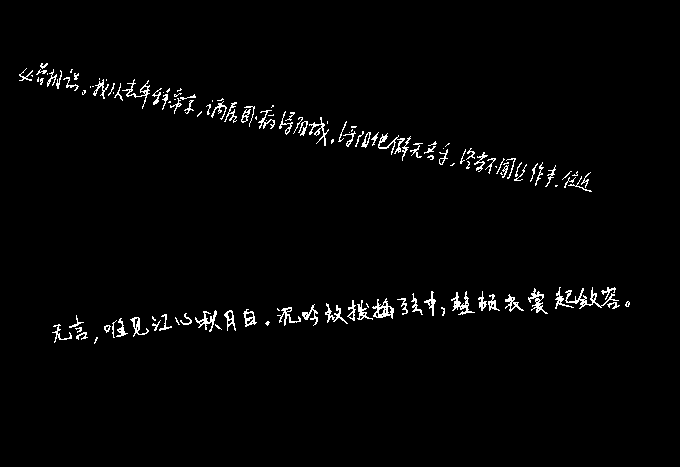 必曾相识。我从去年辞帝京，谪居卧病浔阳城。浔阳地僻无音乐，终岁不闻丝竹声。住近
无言，唯见江心秋月白。沉吟放拨插弦中，整顿衣裳起敛容。